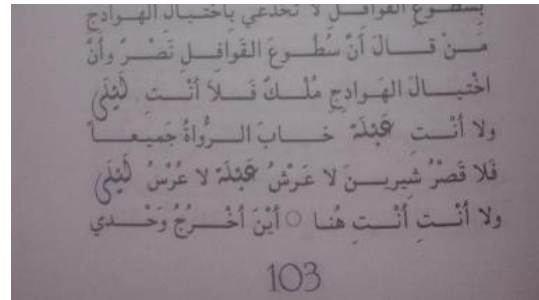 بِسُطُوعِ القَوافِلِ لا تُخْدَعي بِاخْتِبالِ الهَوادِجِ
مَنْ قالَ أنَّ سُطُوعَ القَوافِلِ نَصْرٌ وأنَّ
اخْتِبالَ الهَوادِجِ مُلْكٌ فَلاَ أنْتِ لَيْلَى
ولا أنْتِ عَبْلَةَ خابَ الرُّواةُ جَميعاً
فَلا قَصْرُ شِيرينَ لا عَرْشُ عَبْلَةَ لا عُرْسُ لَيْلَى
ولا أنْتِ أنْتِ هُنا ○ أيْنَ أخْرُجُ وَحْدي
103